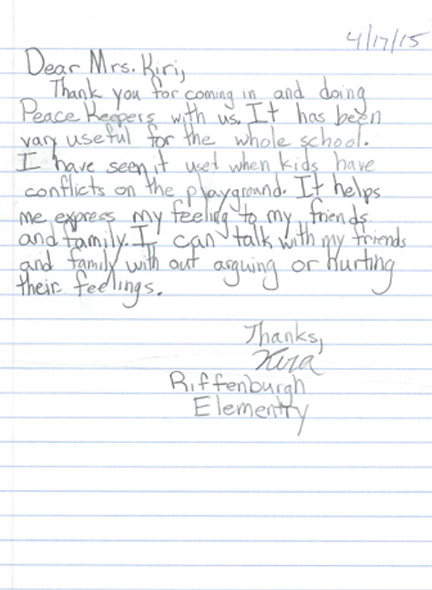 4/17/15
Dear Mrs. Kiri,
Thank you for coming in and doing
Peace Keepers with us. It has been
vary useful for the whole school.
I have seen it used when kids have
conflicts on the playground. It helps
me express my feeling to my friends
and family. I can talk with my friends
and family with out arguing or hurting
their feelings.
Thanks,
Kira
Riffenburgh
Elementry